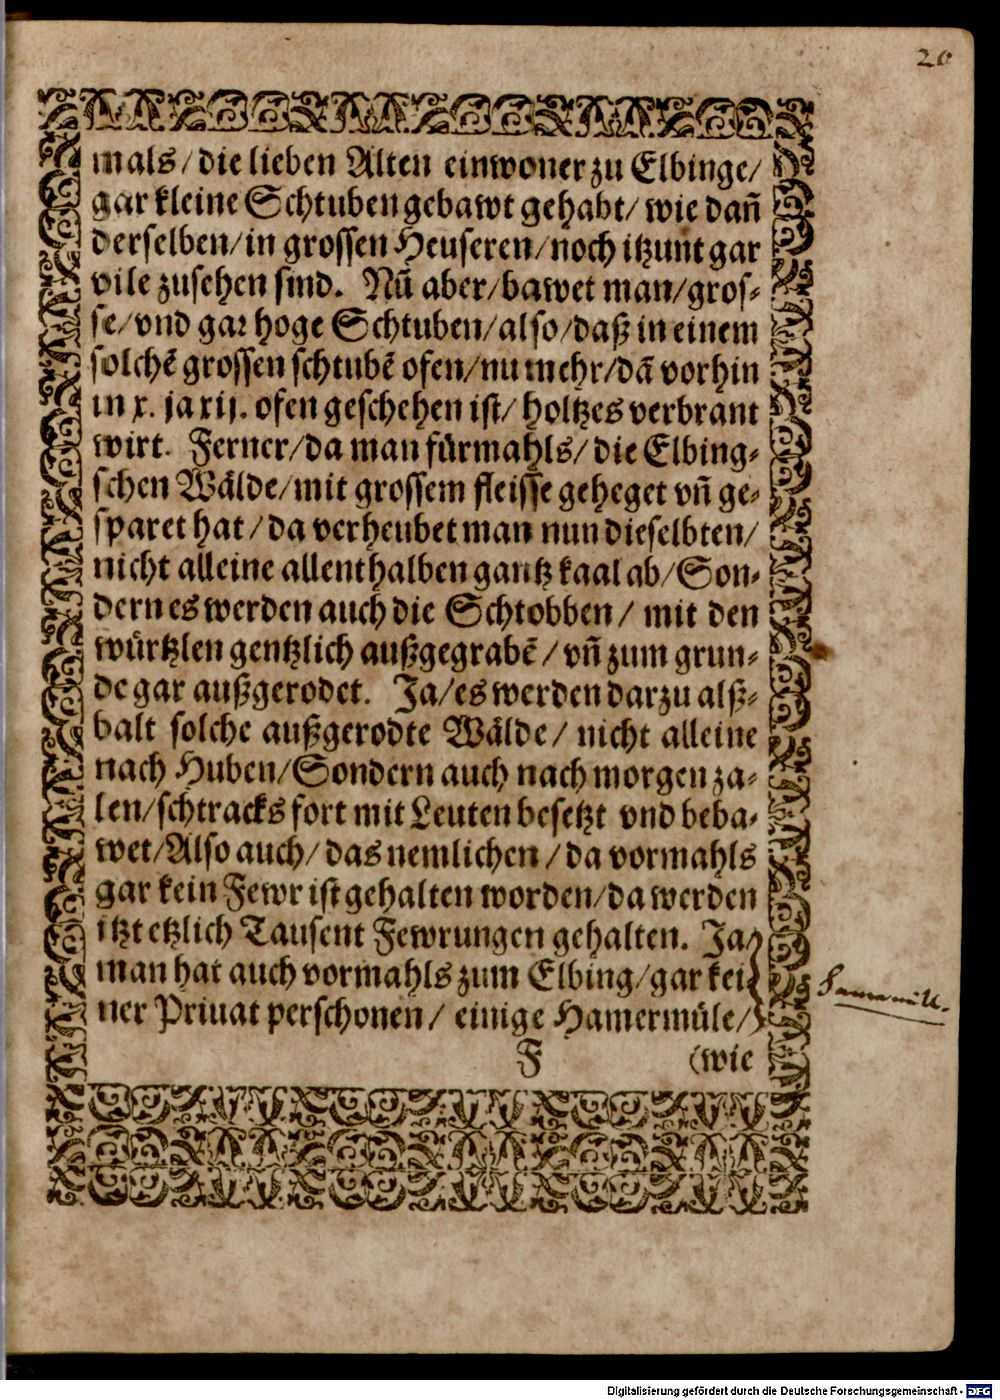 20
mals/ die lieben Alten einwoner zu Elbinge/
gar kleine Schtuben gebawt gehabt/ wie dañ
derselben/ in grossen Heuseren/ noch itzunt gar
vile zusehen sind. Nũ aber/ bawet man/ gros-
se/ vnd gar hoge Schtuben/ also/ daß in einem
solchẽ grossen schtubẽ ofen/ nu mehr/ dã vorhin
in x. ja xij. ofen geschehen ist/ holtzes verbrant
wirt. Ferner/ da man fürmahls/ die Elbing-
schen Wälde/ mit grossem fleisse geheget vñ ge-
sparet hat/ da verheubet man nun dieselbten/
nicht alleine allenthalben gantz kaal ab/ Son-
dern es werden auch die Schtobben/ mit den
würtzlen gentzlich außgegrabẽ/ vñ zum grun-
de gar außgerodet. Ja/ es werden darzu alß-
balt solche außgerodte Wälde/ nicht alleine
nach Huben/ Sondern auch nach morgen za-
len/ schtracks fort mit Leuten besetzt vnd beba-
wet/ Also auch/ das nemlichen/ da vormahls
gar kein Fewr ist gehalten worden/ da werden
itzt etzlich Tausent Fewrungen gehalten. Ja/
man hat auch vormahls zum Elbing/ gar kei
ner Priuat perschonen/ einige Hamermüle/
F (wie
Digitalisierung gefördert durch die Deutsche Forschungsgemeinschaft - DFG